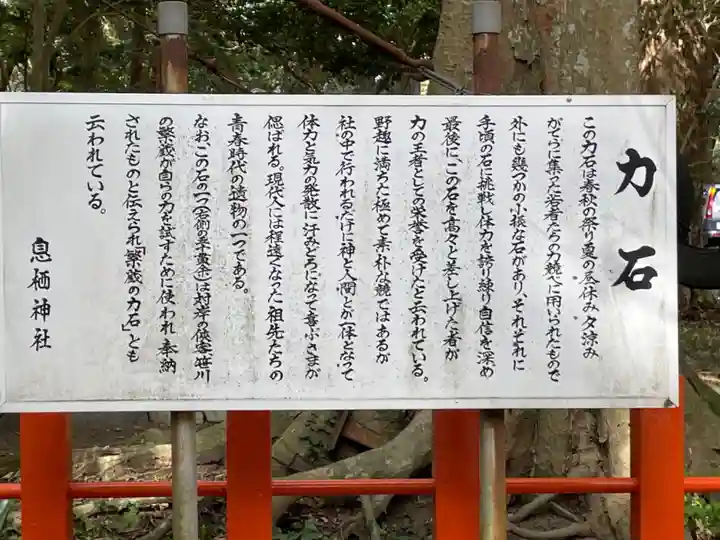 力石
この力石は春秋の祭り夏の昼休み夕涼み
がてらに集った若者たちの力競べに用いられたもので
外にも幾つかの小振な石があり、それぞれに
手頃の石に挑戦し体力を誇り練り自信を深め
最後に、この石を高々と差し上げた者が
力の王者としての栄誉を受けたと云われている。
野趣に満ちた極めて素朴な競ではあるが
社の中で行われるだけに神と人間とが一体となって
体力と気力の発散に汗みどろになって喜ぶさまが
偲ばれる。現代人には程遠くなった祖先たちの
青春時代の遺物の一つである。
なおこの石の一つ(右側の平黄染)は村岸の侠客、笹川
の繁蔵が自らの力を試すために使われ、奉納
されたものと伝えられ「繁蔵の力石」とも
云われている。
息栖神社